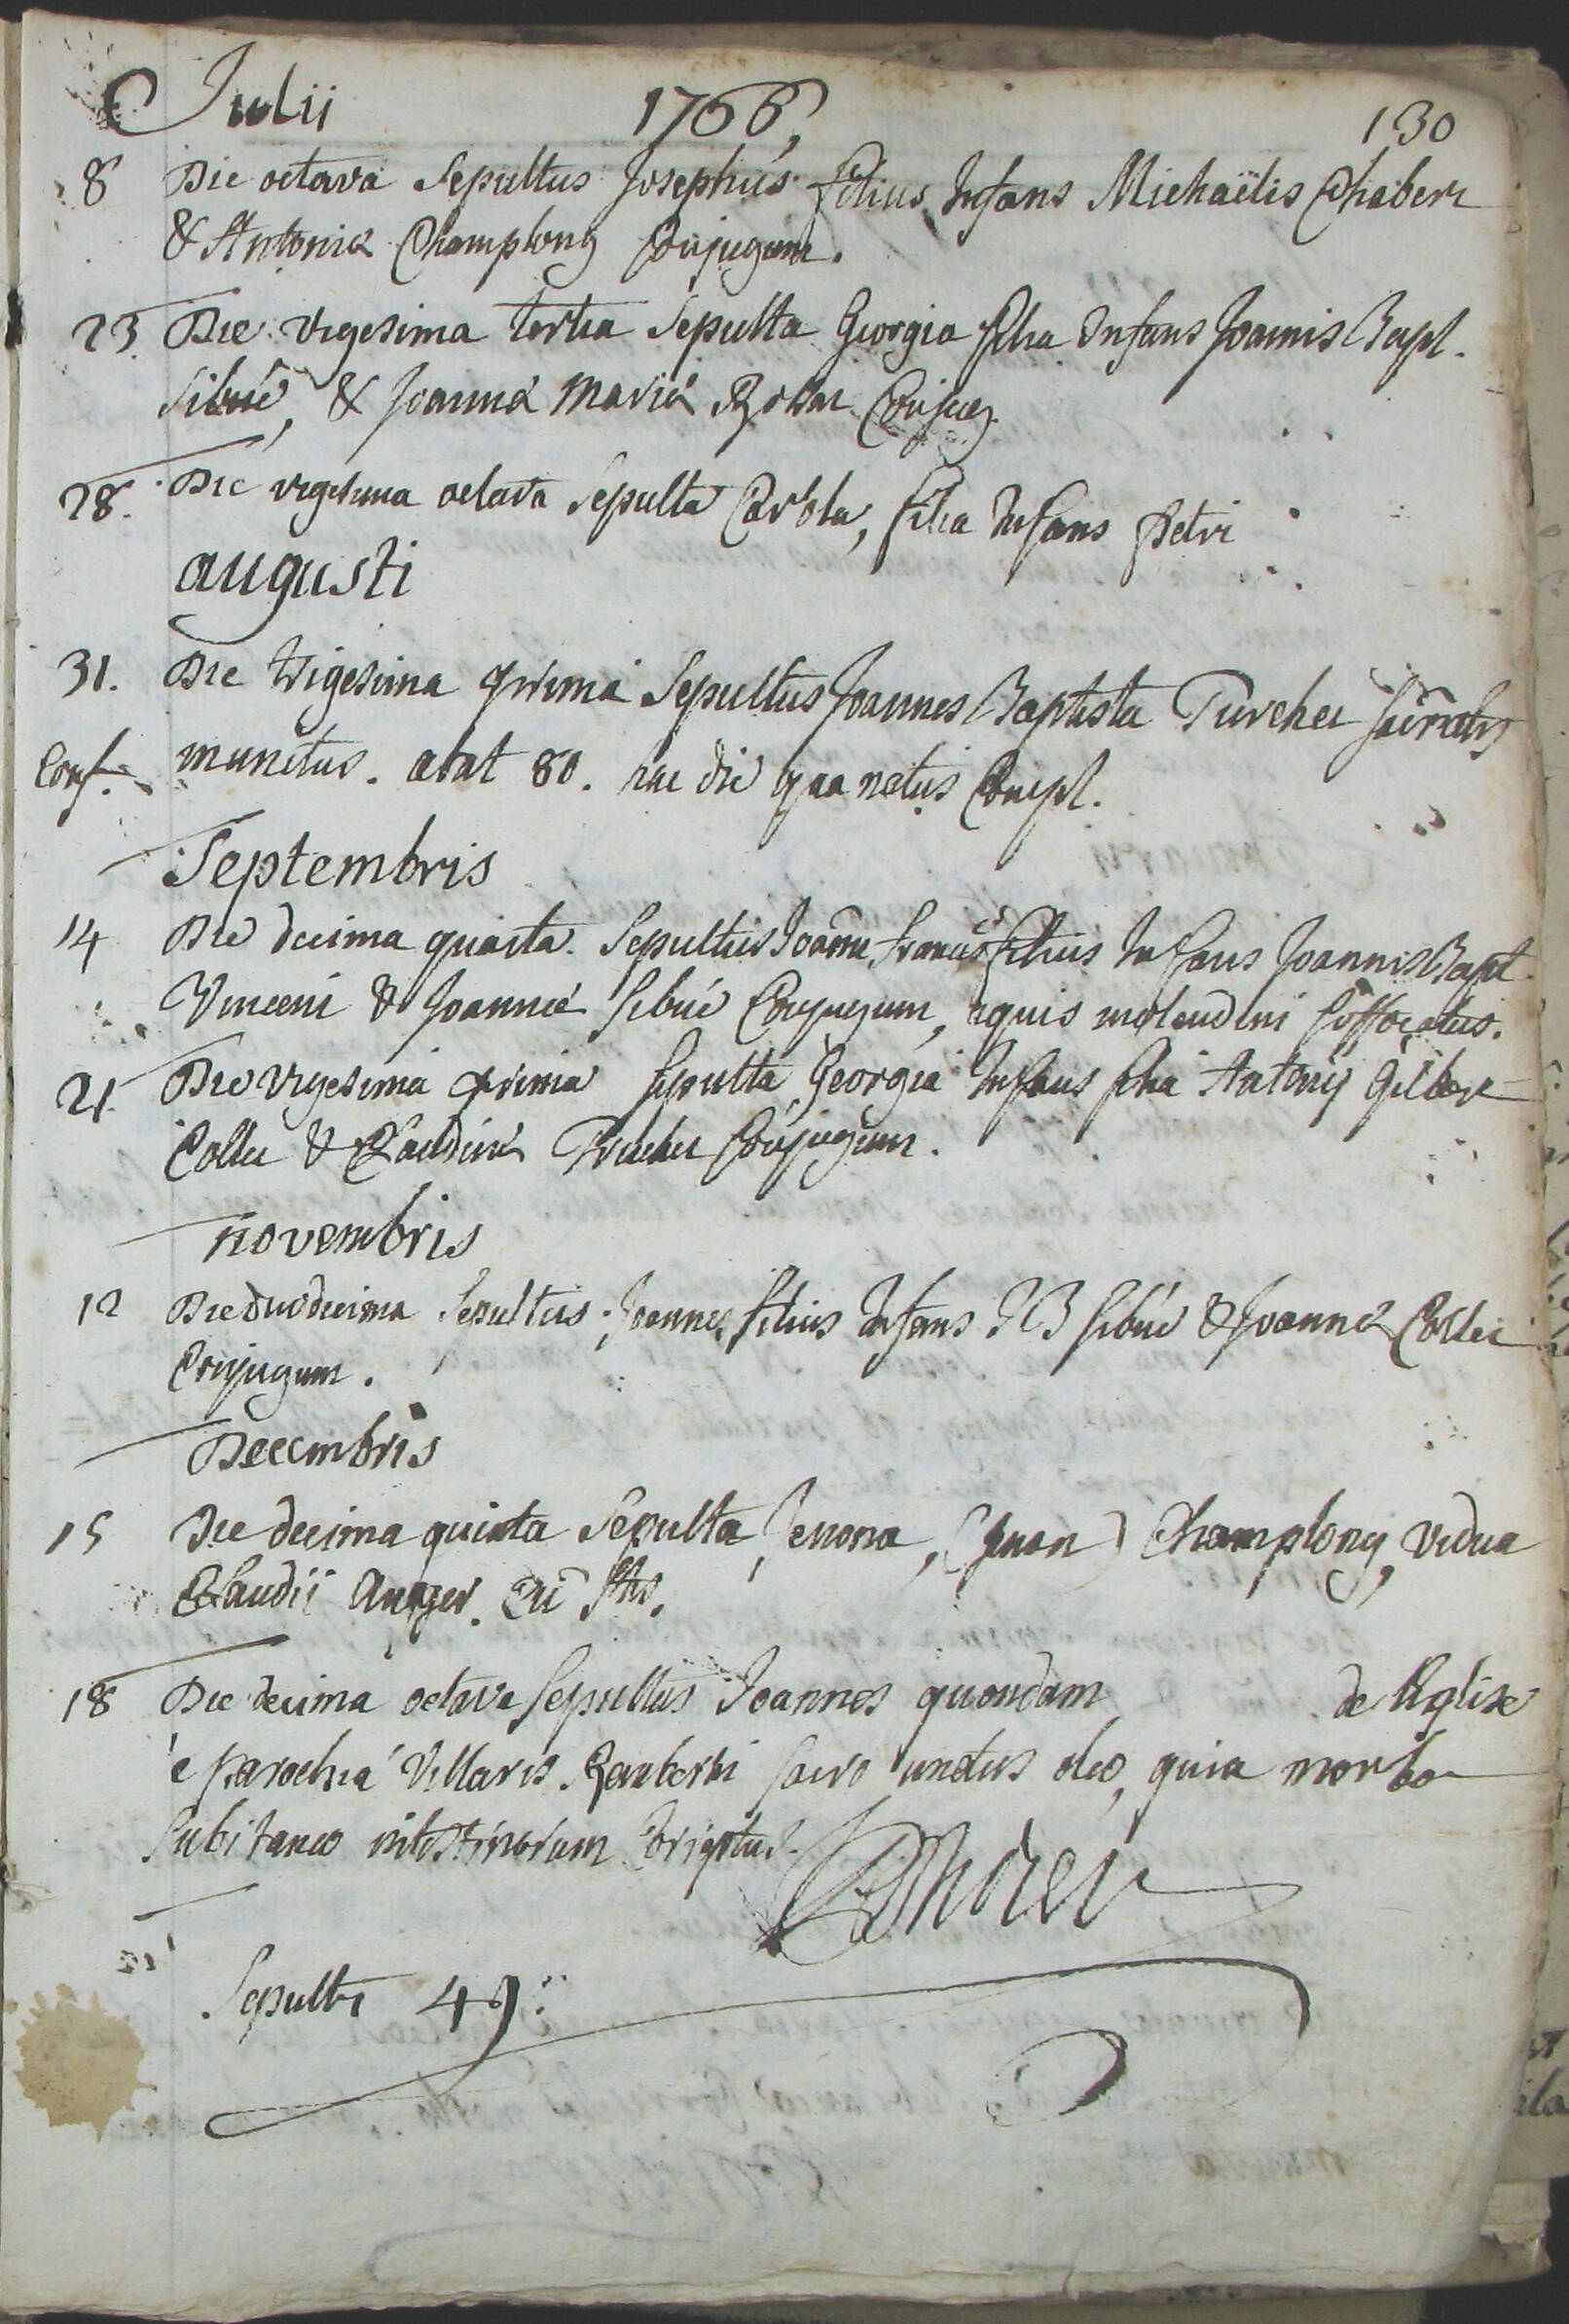 Julii 1766, 130
8 Die octava Sepultus Josephus filius Infans Michaëlis Chaber
& Antoniæ Champlong Conjugum.
23. Die vigesima tertia Sepulta Georgia filia Infans Joannis Bapt.
Sibué, & Joannæ Mariæ Conjug.
28. Die vigesima octava Sepulta Carola, filia Infans Petri
augusti
31. Die trigesima prima Sepultus Joannes Baptista Turcher
Conf. munitus. ætat 80. hac die qua natus Compl.
Septembris
14 Die decima quarta. Sepultus Joānn filius Infans Joannis Bapt.
Vincent & Joannæ Sibué Conjugum, aquis molendini suffocatus.
21. Die Vigesima prima Sepulta Georgia Infans filia Antonij Gilber
Collet & Claudinæ Conjugum.
novembris
12 Die duodecima Sepultus Joannes filius Infans JB Sibué & Joannæ Collet
Conjugum.
Decembris
15 Die decima quinta Sepulta Champlong, vidua
Claudii Auger.
18 Die decima octava Sepultus Joannes quondam de
è parochiâ Villaris sacro unctus oleo, quia morbo
Subitaneo intestinorum
Sepulti 49.